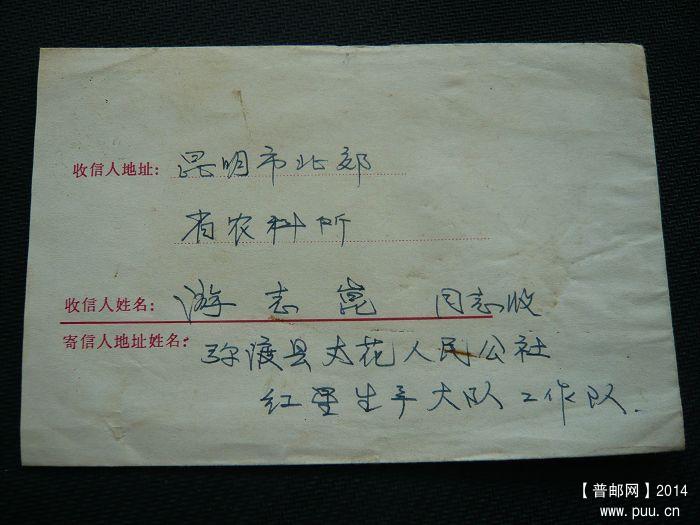 收信人地址: 昆明市北郊
省农科所
收信人姓名: 游志崑 同志收
寄信人地址姓名: 弥渡县太花人民公社
红星生产大队工作队.
【普邮网】2014
www.puu.cn